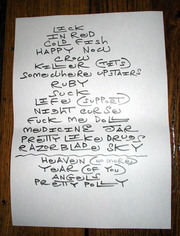 LICK
IN RED
COLD FISH
HAPPY NOW
CROW
KILLER GETS
SOMEWHERE UPSTAIRS
RUBY
SUCK
LIFE SUPPORT
NIGHT CURSE
FUCK ME DOLL
MEDICINE JAR
PRETTY LIKE DRUGS
RAZORBLADE SKY
HEAVEN NO MORE
YEAR OF YOU
ANGELS
PRETTY POLLY